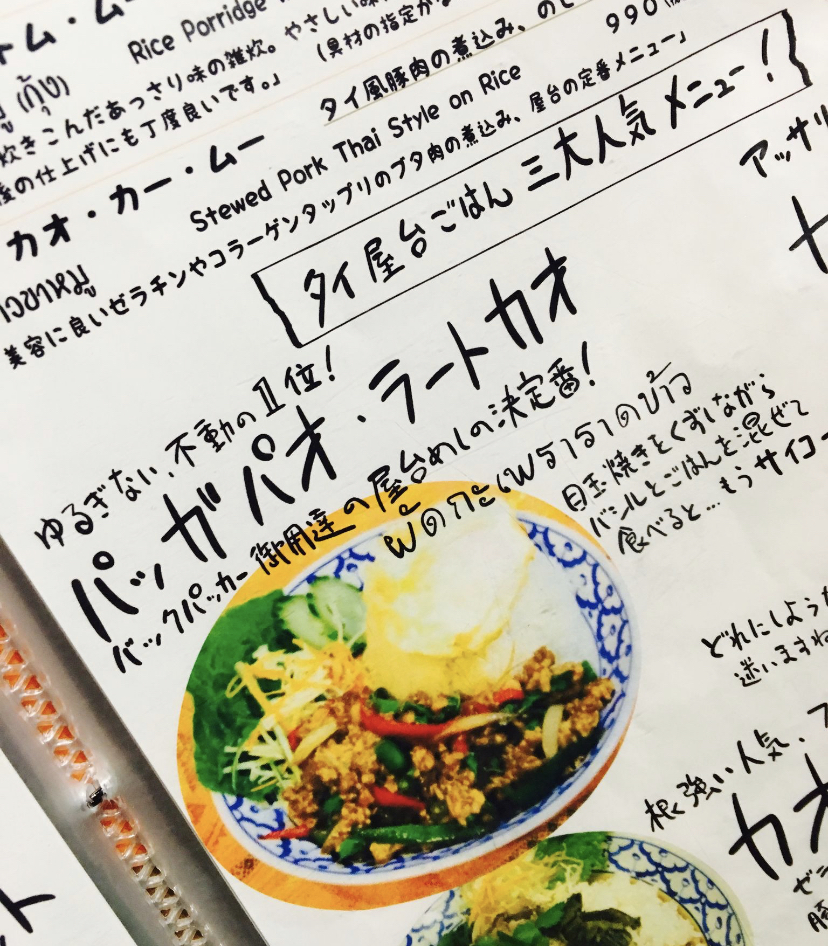 トム・ム
Rice Porridge
(กุ้ง)
炊きこんだあっさり味の雑炊。やさしい味
(具材の指定が
後の仕上げにも丁度良いです。」
カオ・カー・ムー
タイ風豚肉の煮込み、のせ
990
Stewed Pork Thai Style on Rice
าวขาหมู
美容に良いゼラチンやコラーゲンタップリのブタ肉の煮込み、屋台の定番メニュー」
タイ屋台ごはん 三大人気メニュー!
アッサリ
ゆるぎない、不動の1位!
パッガパオ・ラートカオ
バックパッカー御用達の屋台めしの決定番!
目玉焼きをくずしながら
バジルとごはんを混ぜて
食べると…もうサイコー
どれにしよう
迷いますね
根強い人気、
カオ